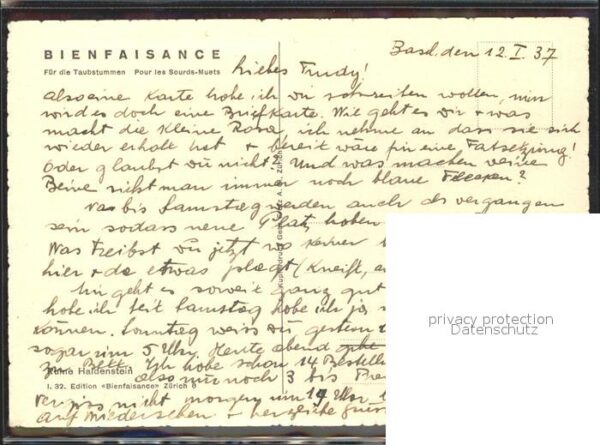 BIENFAISANCE
Für die Taubstummen Pour les Sourds-Muets
Basel, den 12. I. 37
Liebes Trudy!
Also eine Karte habe ich Dir schreiben wollen, nun
wird es doch eine Briefkarte. Wie geht es Dir + was
macht die kleine Rosa, ich nehme an dass sie sich
wieder erholt hat + bereit wäre für eine Fortsetzung!
Oder glaubst Du nicht? Und was machen Deine
Beine sieht man immer noch blaue Flecken?
Na bis Samstag werden auch die vergangen
sein sodass neue Platz haben
Was treibst Du jetzt wo keiner
hier + da etwas plagt (kneift,
Mir geht es soweit ganz gut
habe ich seit Samstag habe ich ja
können. Sonntag weisst Du, gestern
sogar um 5 Uhr. Heute abend geht
zu Bett. Ich habe schon 14 Bestell
Haldenstein
also nur noch 3 bis
I. 32. Edition «Bienfaisance» Zürich 6
Vergiss nicht morgen um 19 Uhr
auf Wiedersehen + herzliche
privacy protection
Datenschutz